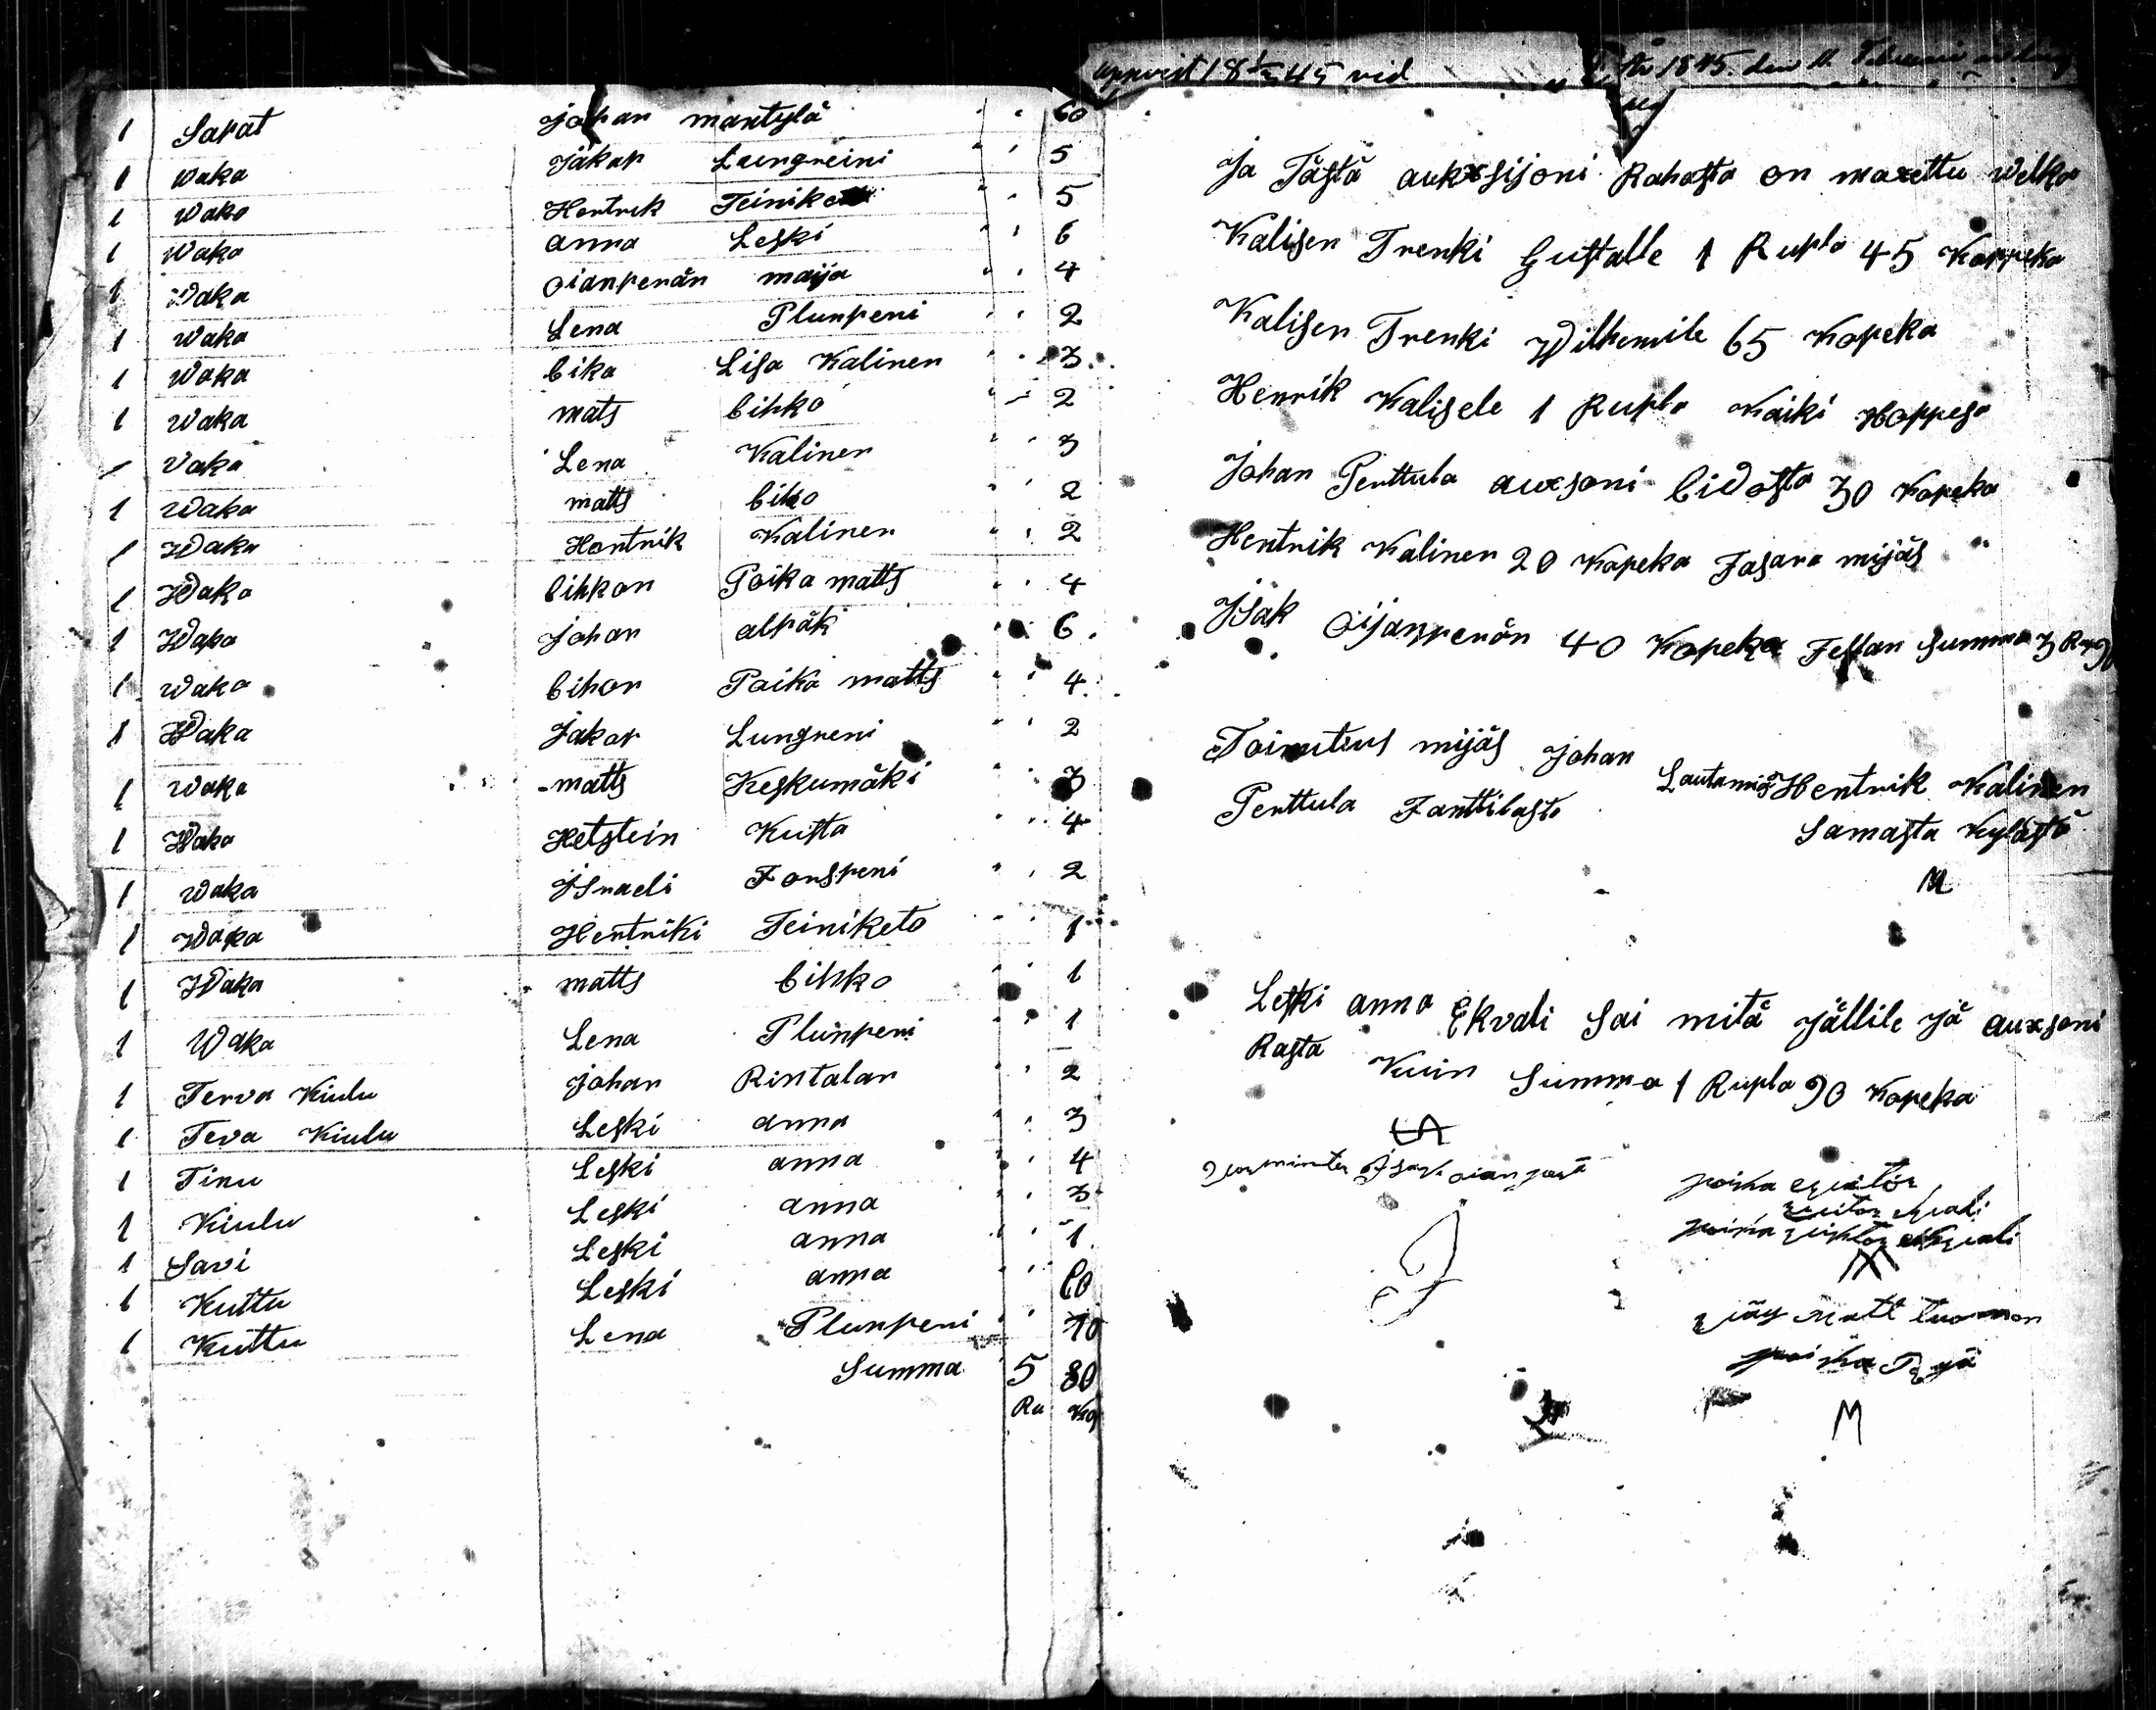 1 Sapat Johan mantylä " " 60
1 waka Jakap Lungreini " " 5
1 wako Hentrik Teiniketo " " 5
1 Wako anna Leski " " 6
1 Waka oianperän maija " " 4
1 waka Lena Plunpeni " " 2
1 Waka Eika Lisa Kalinen " " 3
1 waka mats Eihko " " 2
1 Vaka Lena Kalinen " " 3
1 waka matts Eiko " " 2
1 Waka Hentrik Kalinen " " 2
1 Wako Eihkon Poika matts " " 4
1 Wako Johan alpäk " " 6
1 wako Eihon Poika matts " " 4
1 Waka Jakap Lungreni " " 2
1 waka matts Keskumäki " " 3
1 Wako Hetstein Kusta " " 4
1 waka JSraeli Forspeni " " 2
1 Waka Hentriki Teiniketo " " 1
1 Waka matts Eihko " " 1
1 Waka Lena Plunpeni " " 1
1 Terva Kiulu Johan Rintalan " " 2
1 Teva Kiulu Leski anna " " 3
1 Tinu Leski anna " " 4
1 Kiulu Leski anna " " 3
1 Savi Leski anna " " 1
1 Kuttu Leski anna " " 60
1 Kuttu Lena Plunpeni " " 70
Summa 5 80
Ru Kop
uppvist 18 45 vid
1845 den 11 Februarii
Ja Tästä aukxsijoni Rahasta on maxettu welka
Kalisen Trenki Gustalle 1 Rupla 45 Koppeka
Kalisen Trenki Wilhemile 65 Kopeka
Henrik Kalisele 1 Rupla Kaiki Hoppesa
Johan Perttula auxsoni Eidosta 30 Kopeka
Hentrik Kalinen 20 Kopeka Fasara mijäs
JSak Oijanperän 40 Kopeka Fellan Summa 3 Rup 90
Toimitus mijäs Johan Lautamis Hentrik Kalinen
Perttula Fanttilasto Samasta Kylästä
M
Leski anna Ekvali Sai mitä Jällile Jä auxsoni
Rasta Kuin Summa 1 Rupla 90 Kopeka
JSak oian
poika
poika
matt tuomon
poika
M